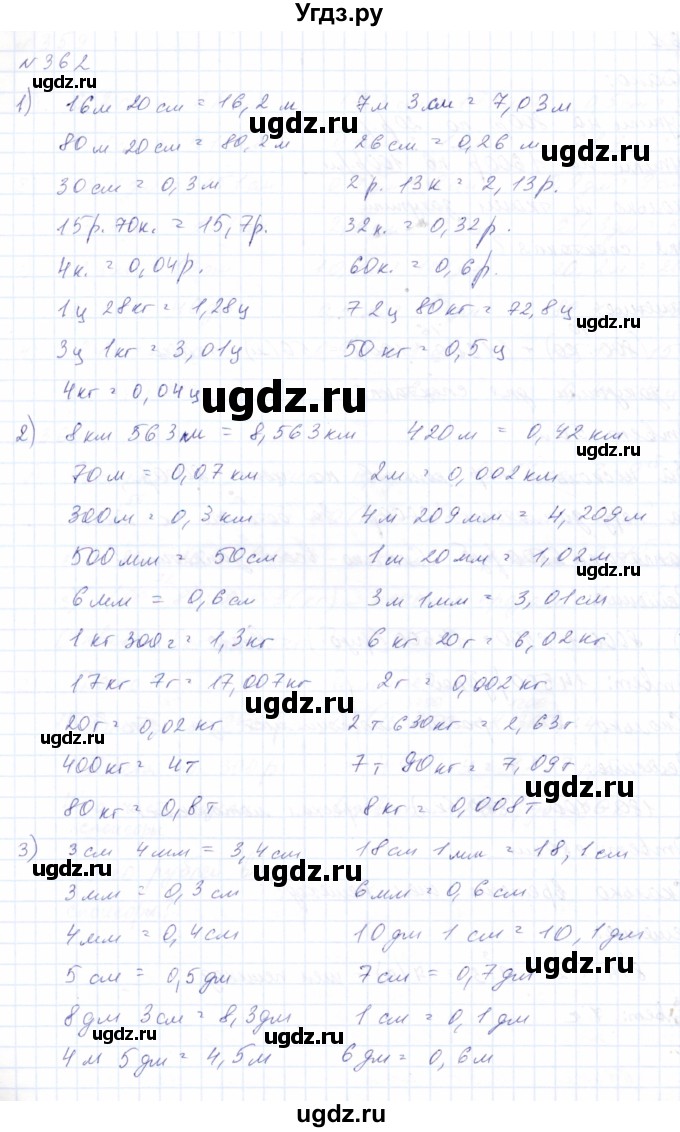 Угдз.ру
№362
1) 16м 20см = 16,2 м 7м 3см = 7,03м
80м 20см = 80,2м 26см = 0,26 м
30см = 0,3м 2р. 13к = 2,13р.
15р. 70к. = 15,7р. 32к. = 0,32р.
4к. = 0,04р. 60к. = 0,6р.
1ц 28кг = 1,28ц 72ц 80кг = 72,8ц
3ц 1кг = 3,01ц 50кг = 0,5 ц
4кг = 0,04ц
2) 8км 563м = 8,563км 420м = 0,42км
70м = 0,07км 2м = 0,002км
300м = 0,3км 4м 209мм = 4,209м
500мм = 50см 1м 20мм = 1,02м
6мм = 0,6см 3м 1мм = 3,01см
1кг 300г = 1,3кг 6кг 20г = 6,02кг
17кг 7г = 17,007кг 2г = 0,002кг
20г = 0,02кг 2т 630кг = 2,63т
400кг = 4т 7т 90кг = 7,09т
80кг = 0,8т 8кг = 0,008т
3) 3см 4мм = 3,4см 18см 1мм = 18,1см
3мм = 0,3см 6мм = 0,6см
4мм = 0,4см 10дм 1см = 10,1дм
5см = 0,5дм 7см = 0,7дм
8дм 3см = 8,3дм 1см = 0,1дм
4м 5дм = 4,5м 6дм = 0,6м
ugdz.ru